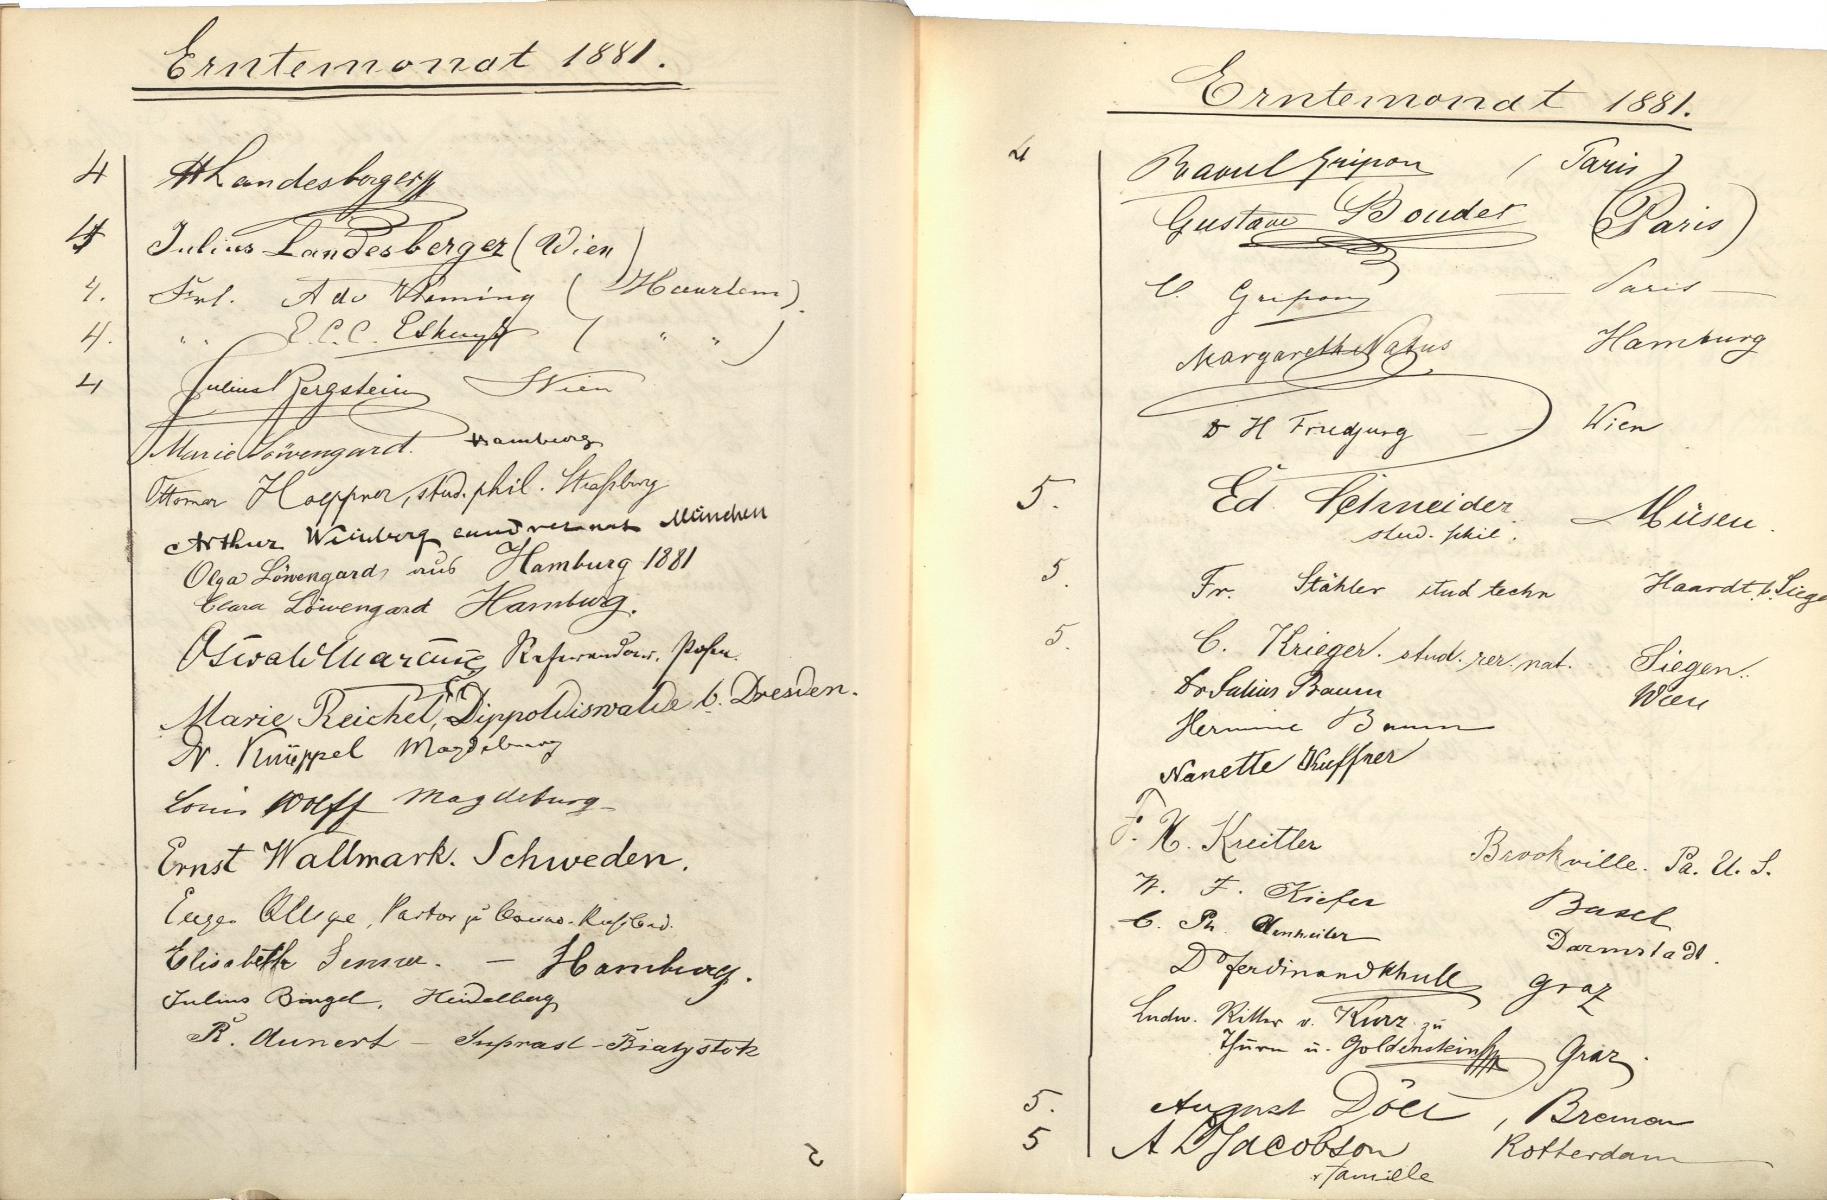 Erntemonat 1881.
4 Landesberger
4 Julius Landesberger (Wien)
4. Frl. Ada Vleming (Haarlem)
4. " " E.C.C. ( " " )
4 Julius Bergstein Wien
Marie Löwengard. Hamburg
Ottomar Hoeppner, stud. phil. Straßburg
Arthur Weinberg cand rer nat München
Olga Löwengard, aus Hamburg 1881
Clara Löwengard Hamburg.
Oswald Marcus, Referendar, Posen.
Marie Reichel, Dippoldiswalde b. Dresden.
N. Knüppel Magdeburg
Louis Wolff Magdeburg
Ernst Wallmark. Schweden.
Pastor zu
Elisabeth - Hamburg.
Julius Bingel, Heidelberg
R. Aunert - Suprasl - Bialystok
2
Erntemonat 1881.
4 Raoul Gripon (Paris)
Gustave Boudet (Paris)
Gripon — Paris —
Margarethe Natus Hamburg
Dr H Friedjung - - Wien
5. Ed. Schneider Müsen.
stud. phil.
5. Fr. Stähler stud techn Haardt b. Siege
5. C. Krieger. stud. rer. nat. Siegen.
Dr Julius Baum Wien
Hermine Baum
Nanette Kuffner
Kreitler Brookville. Pa. U. S.
W. F. Kiefer Basel
C. Ph. Darmstadt.
Dr Ferdinand Khull Graz
Ludw. Ritter v. Kurz zu
Thurn u. Goldenstein Graz.
5. August Döll, Bremen
5 A Jacobson Rotterdam
+ famille